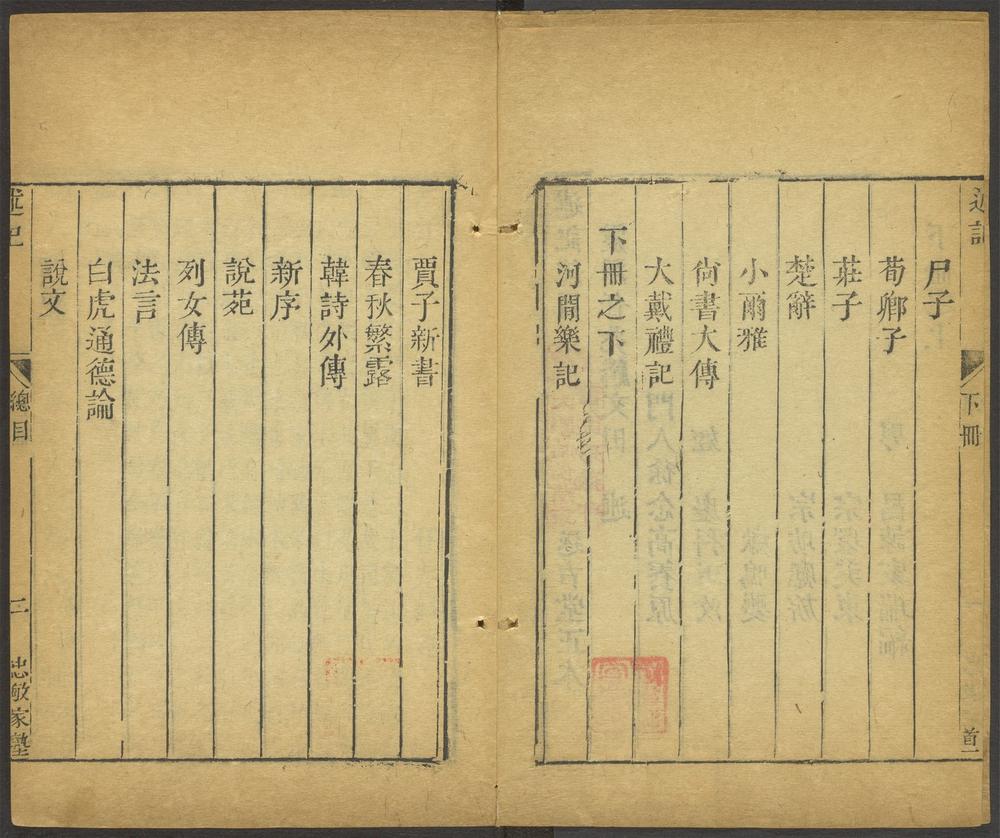 述記
下冊
首一
尸子
荀卿子
莊子
楚辭
小爾雅
尙書大傳
大戴禮記
下冊之下
河閒樂記
賈子新書
春秋繁露
韓詩外傳
新序
說苑
列女傳
法言
白虎通德論
說文
述記
總目
三
忠敏家塾